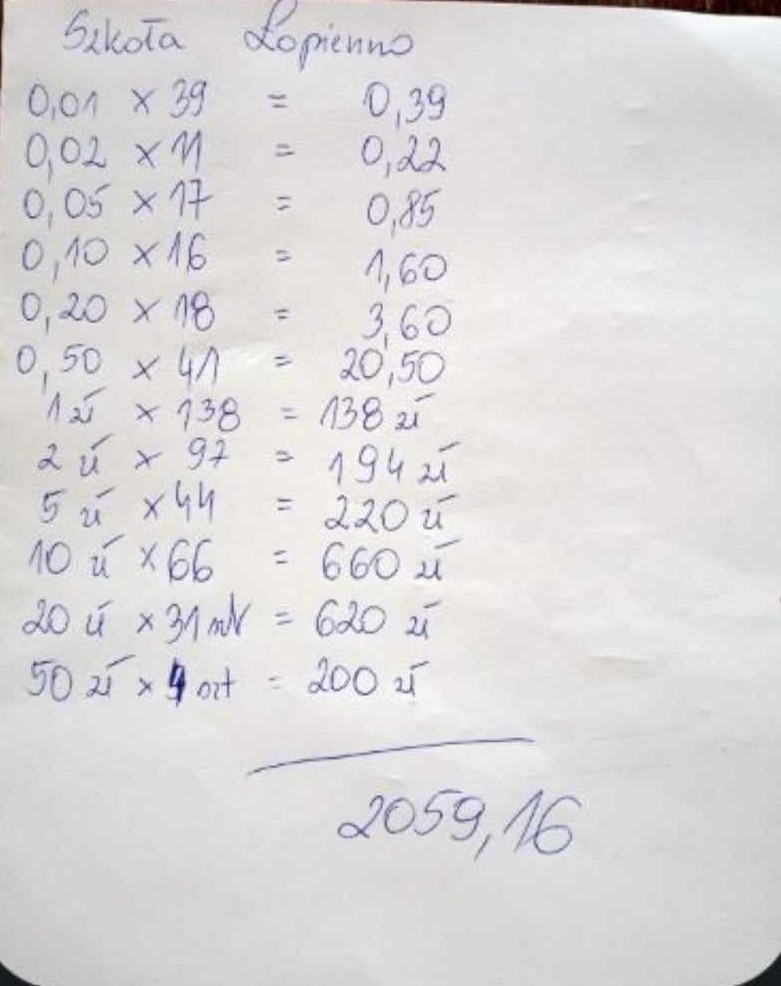 Szkoła Łopienno
0,01 × 39 = 0,39
0,02 × 11 = 0,22
0,05 × 17 = 0,85
0,10 × 16 = 1,60
0,20 × 18 = 3,60
0,50 × 41 = 20,50
1 zł × 138 = 138 zł
2 zł × 97 = 194 zł
5 zł × 44 = 220 zł
10 zł × 66 = 660 zł
20 zł × 31 szt = 620 zł
50 zł × 4 szt = 200 zł
2059,16